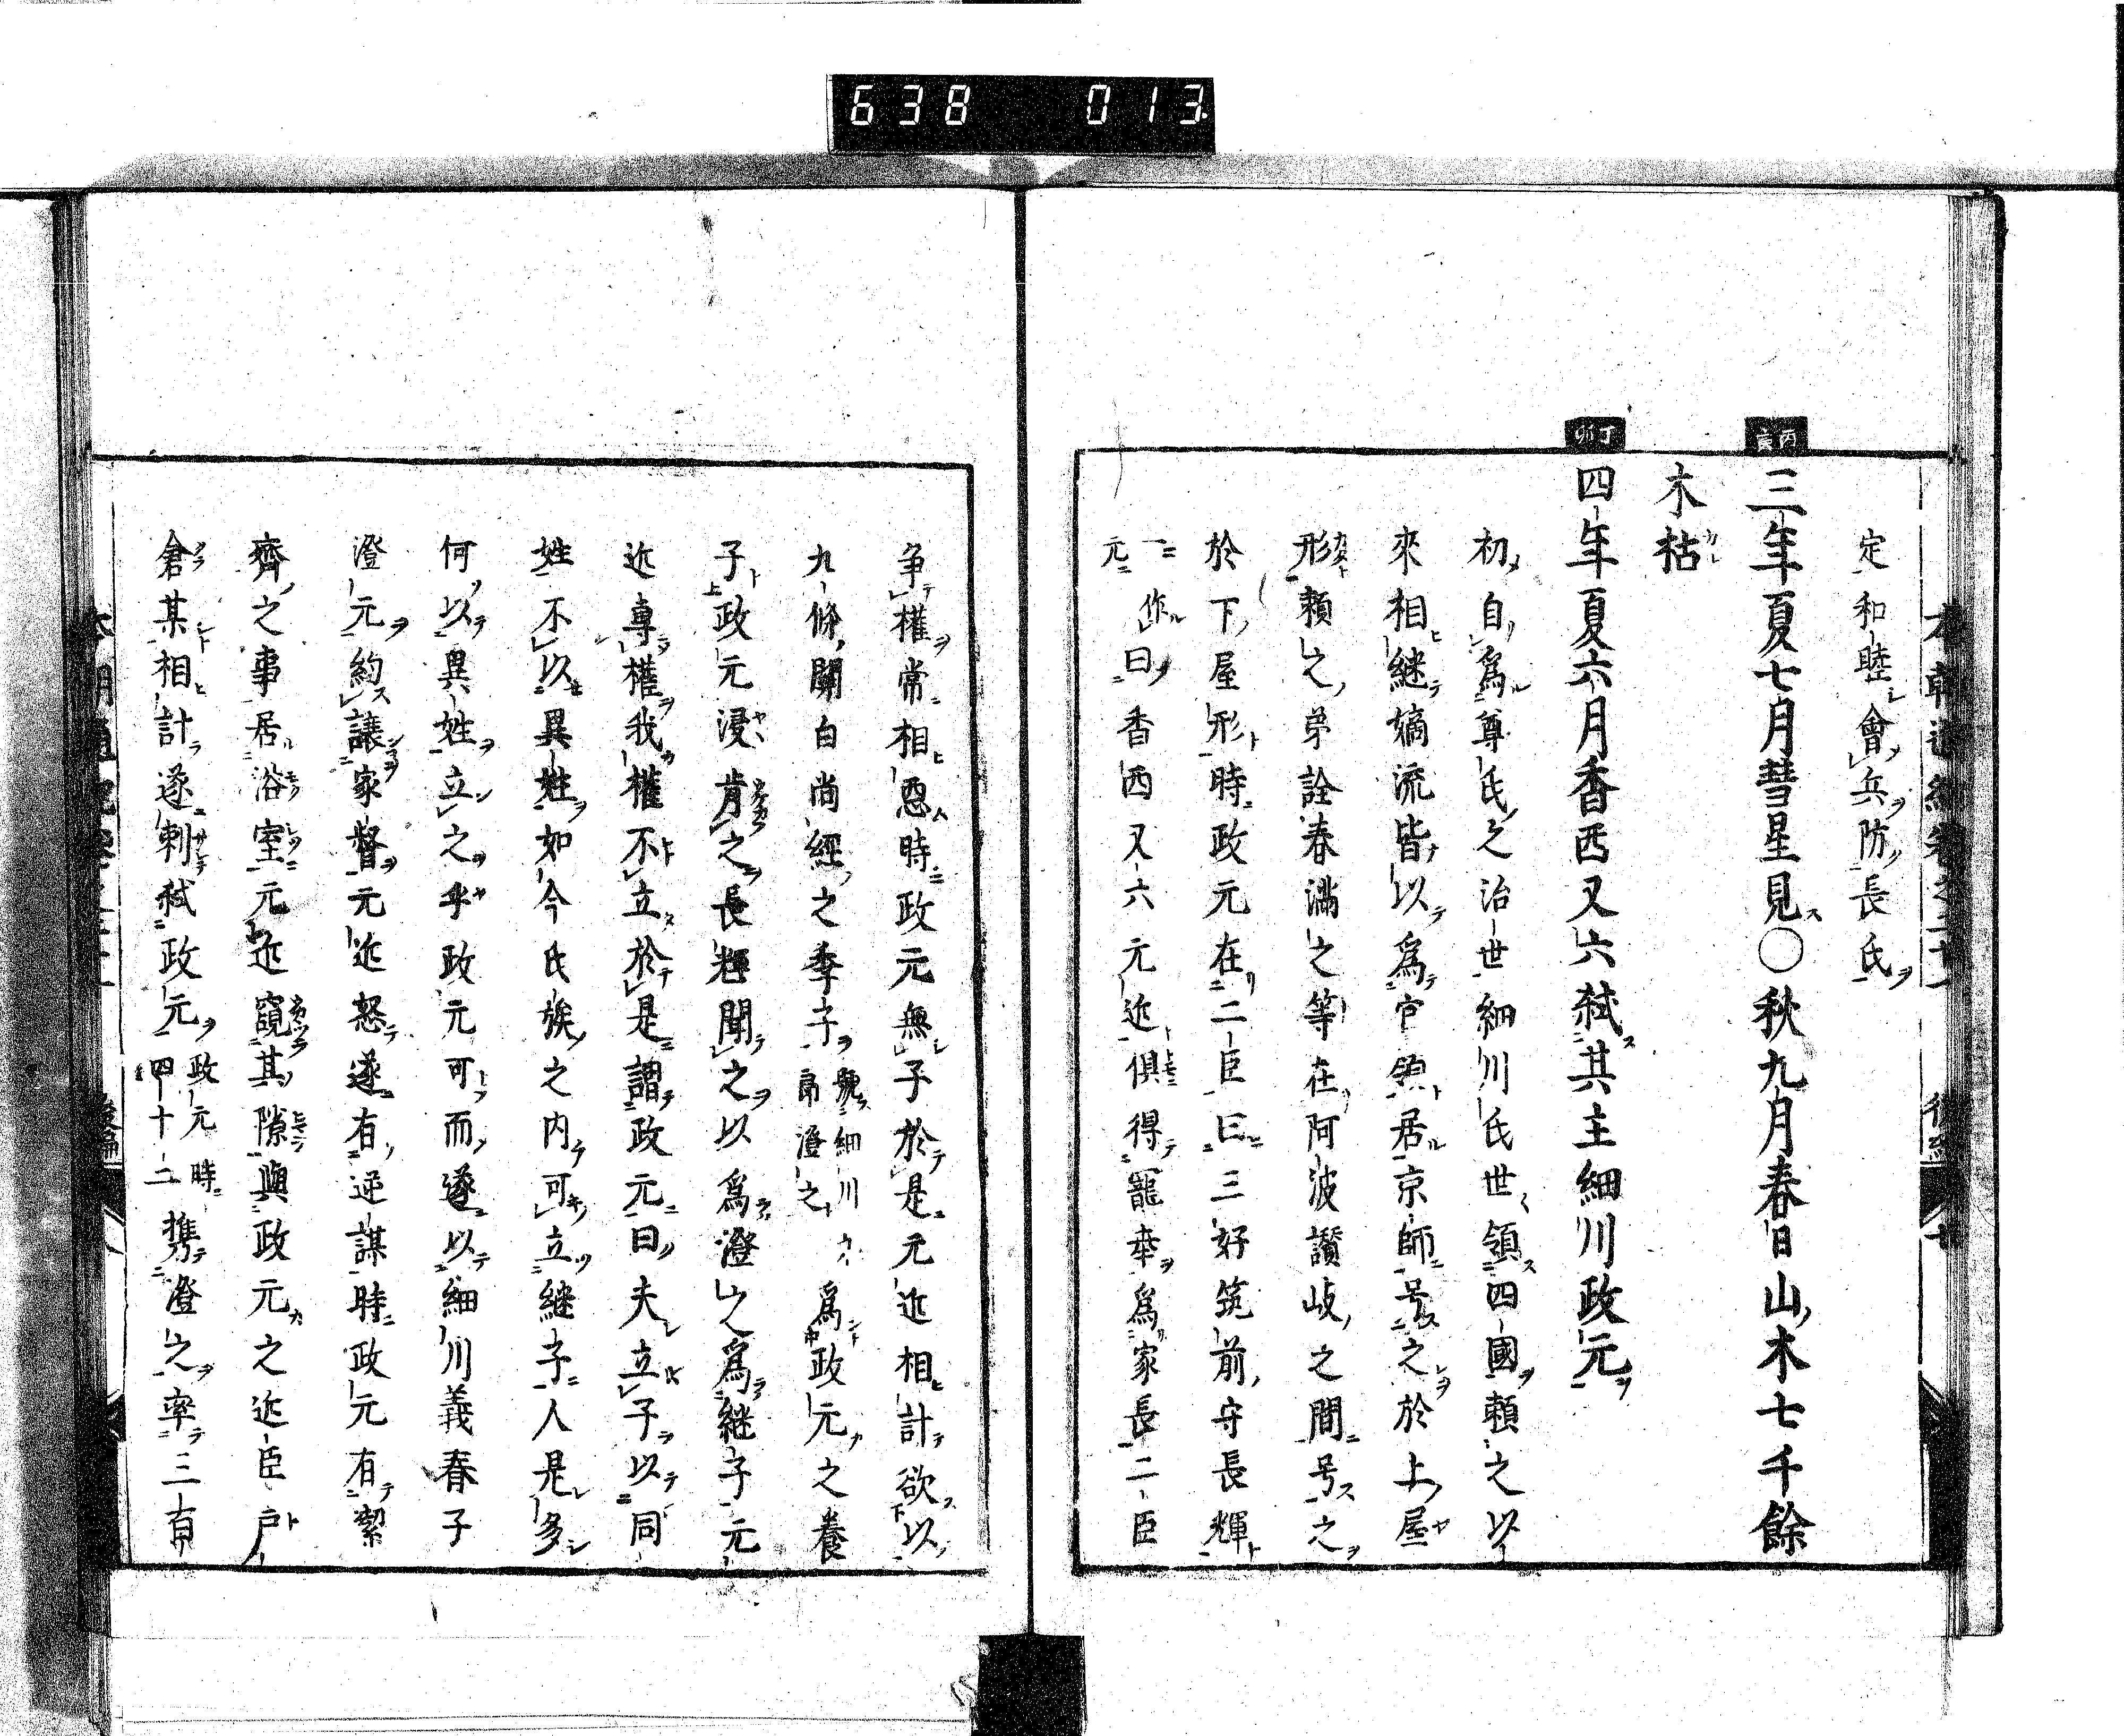 638 013
定和睦會兵防長氏
丙寅
三年夏七月彗星見〇秋九月春日山木七千餘
木枯
丁卯
四年夏六月香西又六弑其主細川政元
初自爲尊氏之治世細川氏世領四國頼之以
來相継嫡流皆以爲官領居京師号之於上屋
形頼之弟詮春満之等在阿波讃岐之間号之
於下屋形時政元在二臣曰三好筑前守長輝
一作元曰香西又六元近俱得寵幸爲家長二臣
争權常相惡時政元無子於是元近相計欲以
九條關白尚經之季子號細川九郎澄之爲政元之養
子政元浸肯之長輝聞之以爲澄之爲継子元
近專權我權不立於是謂政元曰夫立子以同
姓不以異姓如今氏族之内可立継子人是多
何以異姓立之乎政元可而遂以細川義春子
澄元約讓家督元近怒遂有逆謀時政元有潔
齊之事居浴室元近窺其隙與政元之近臣戸
倉某相計遂刺弑政元政元時四十二攜澄之率三百